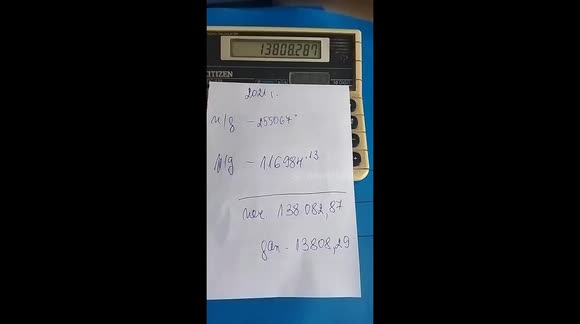 13808.287
CITIZEN
2021 г.
п/д – 255067,-
р/д – 116984,13
печ 138 082,87
дан – 13808,29